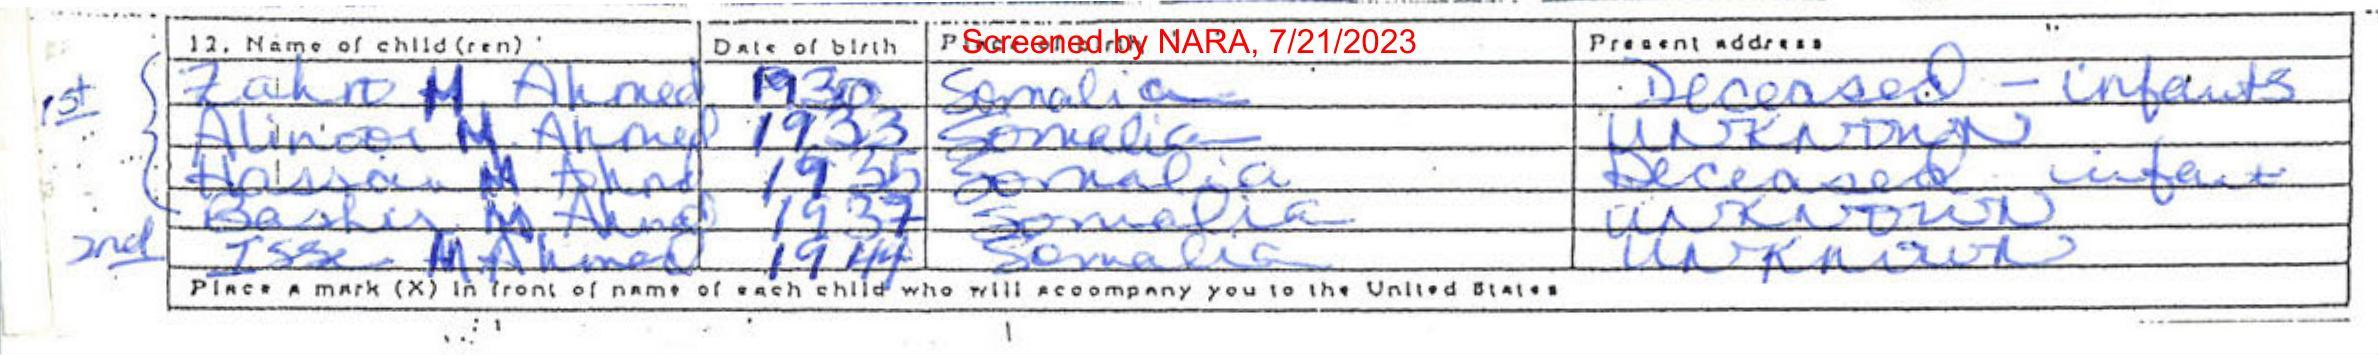 12. Name of child(ren) Date of birth Screened by NARA, 7/21/2023 Present address
1st Zahro M Ahmed 1930 Somalia Deceased - infants
Alinoor M. Ahmed 1933 Somalia UNKNOWN
Hassan M Ahmd 1935 Somalia Deceased infant
Bashir M Ahmed 1937 Somalia UNKNOWN
2nd Isse M Ahmed 1944 Somalia UNKNOWN
Place a mark (X) in front of name of each child who will accompany you to the United States